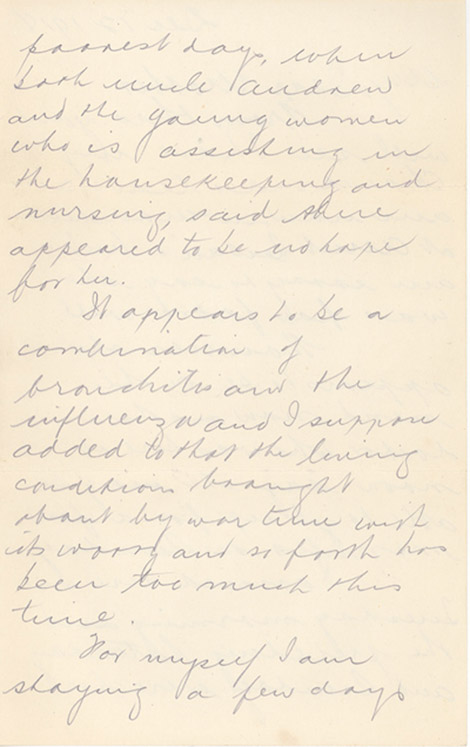 poorest day, when
both uncle Andrew
and the young women
who is assisting in
the housekeeping and
nursing, said there
appeared to be no hope
for her.
It appears to be a
combination of
bronchitis and the
influenza and I suppose
added to that the living
conditions brought
about by war time with
its worry and so forth has
been too much this
time.
For myself I am
staying a few days